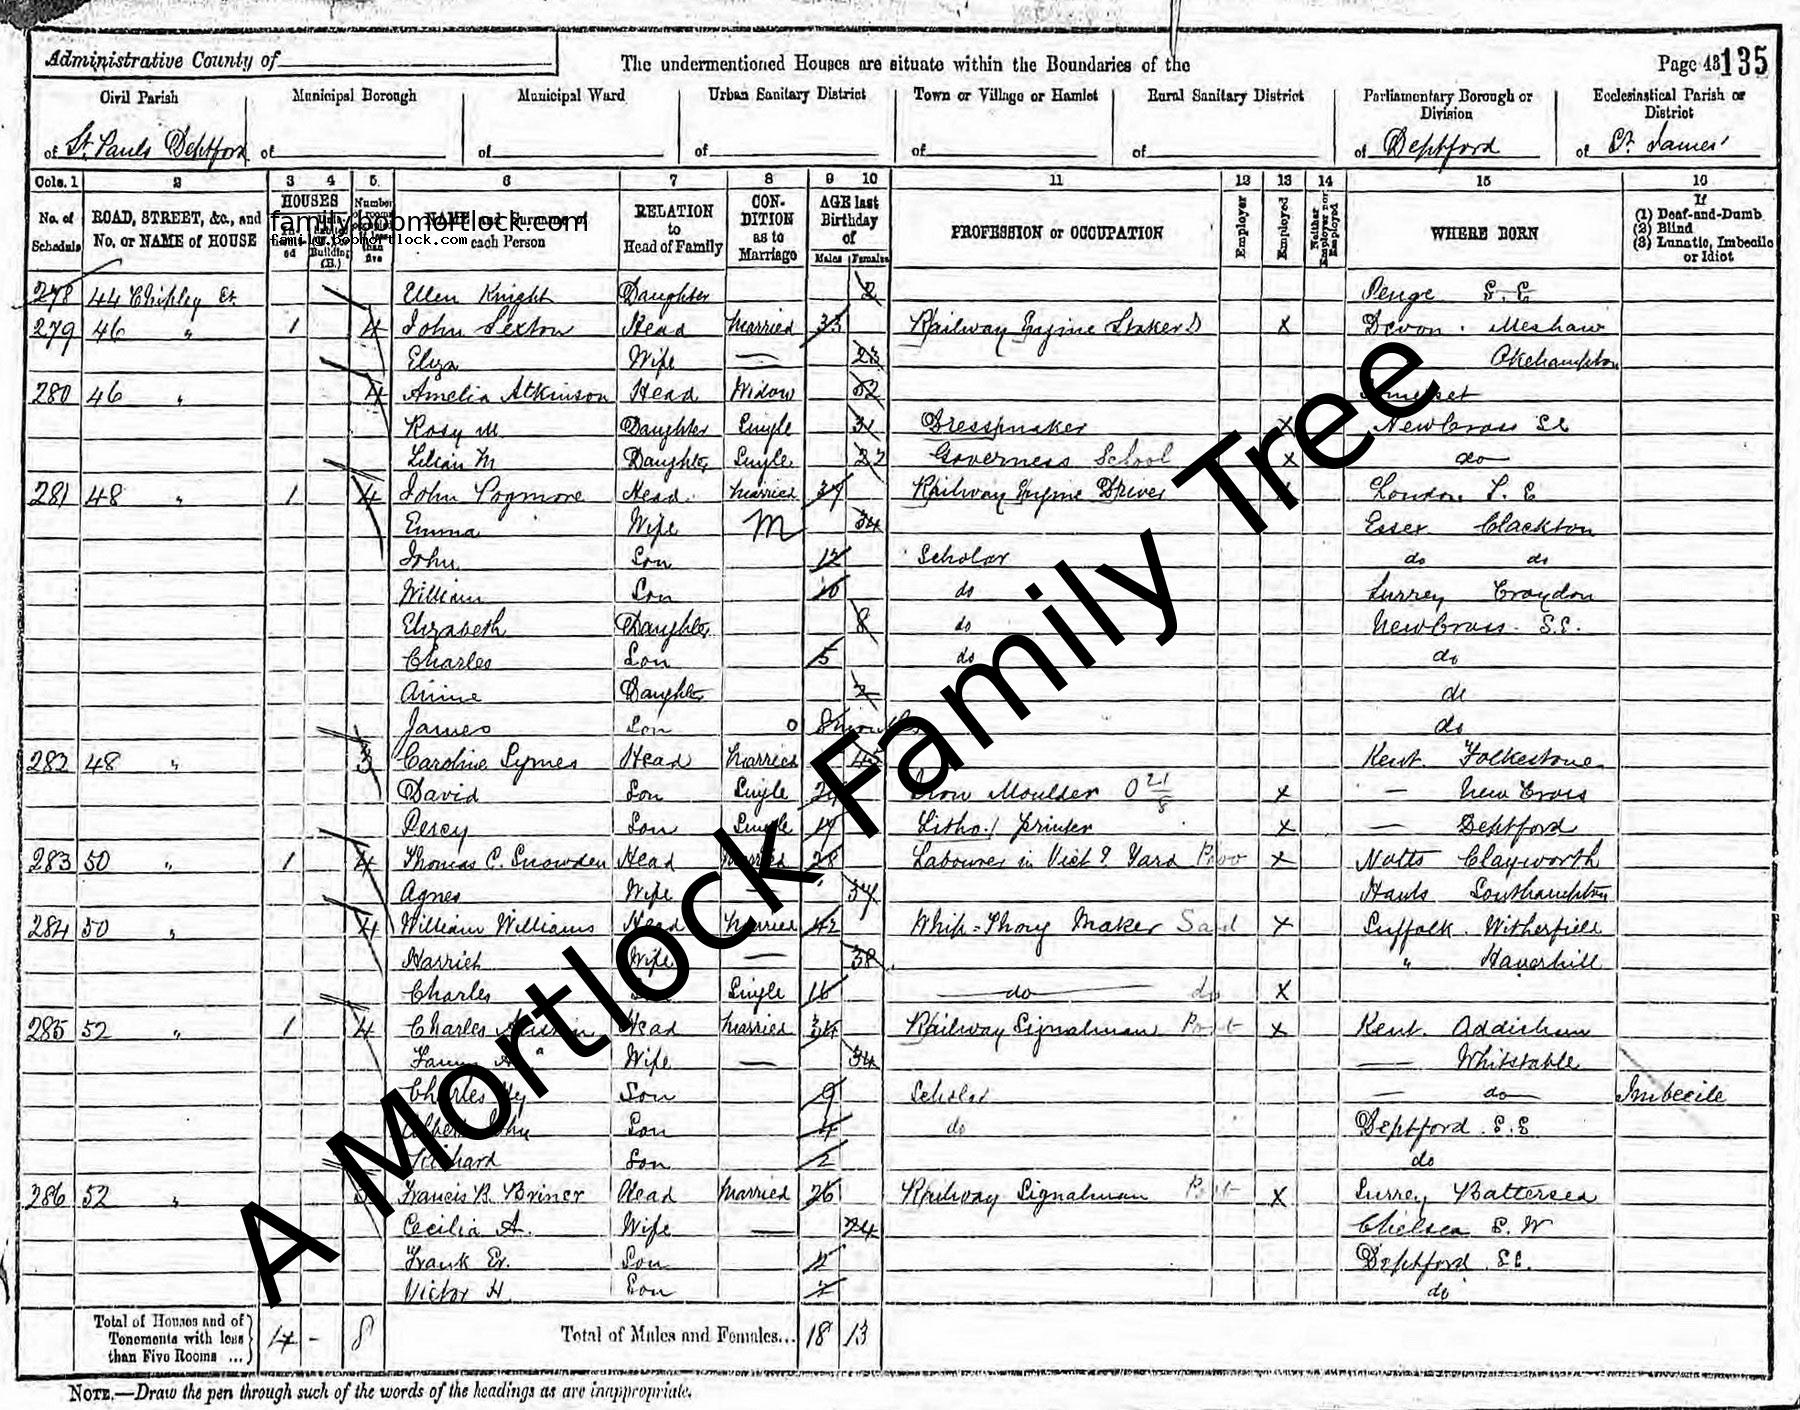 Administrative County of
The undermentioned Houses are situate within the Boundaries of the
Page 43
135
Civil Parish
Municipal Borough
Municipal Ward
Urban Sanitary District
Town or Village or Hamlet
Rural Sanitary District
Parliamentary Borough or Division
Ecclesiastical Parish or District
of St. Pauls Deptford of of of of of of Deptford of St. James'
Cols. 1 2 3 4 5. 6 7 8 9 10 11 12 13 14 15 16
No. of Schedule
ROAD, STREET, &c., and No. or NAME of HOUSE
HOUSES
NAME and Surname of each Person
RELATION to Head of Family
CONDITION as to Marriage
AGE last Birthday of
Males Females
PROFESSION or OCCUPATION
Employer
Employed
Neither Employer nor Employed
WHERE BORN
If
(1) Deaf-and-Dumb
(2) Blind
(3) Lunatic, Imbecile or Idiot
family.bobmortlock.com
family.bobmortlock.com
278 44 Chipley St. Ellen Knight Daughter 2 Penge S.E
279 46 " 1 4 John Sexton Head Married 33 Railway Engine Stoker x Devon. Meshaw
Eliza Wife — 23 Okehampton
280 46 " 4 Amelia Atkinson Head Widow 52 Somerset
Rosy M Daughter Single 31 Dressmaker x New Cross S.E
Lilian M Daughter Single 22 Governess School x do
281 48 " 1 4 John Pogmore Head Married 37 Railway Engine Driver London S.E
Emma Wife M 34 Essex Clackton
John Son 12 Scholar do do
William Son 10 do Surrey Croydon
Elizabeth Daughter 8 do New Cross S.E.
Charles Son 5 do do
Annie Daughter 2 do
James Son 0 8 months do
282 48 " 3 Caroline Symes Head Married 45 Kent. Folkestone
David Son Single 24 Iron Moulder x — New Cross
Percy Son Single 17 Litho. Printer x — Deptford
283 50 " 1 4 Thomas C. Snowden Head Married 28 Labourer in Vict. Yard x Notts Clayworth
Agnes Wife — 37 Hants Southampton
284 50 " 4 William Williams Head Married 42 Whip-Thong Maker x Suffolk. Witherfield
Harriet Wife — 38 " Haverhill
Charles Son Single 16 do x
285 52 " 1 4 Charles Head Married 34 Railway Signalman x Kent. Addisham
Fanny Wife — 34 — Whitstable
Charles Hy Son 9 Scholar — do Imbecile
Albert John Son 4 do Deptford. S.E
Son 2 do
286 52 " Francis B. Briner Head Married 26 Railway Signalman x Surrey Battersea
Cecilia A. Wife — 24 Chelsea S.W
Frank Er. Son Deptford S.E.
Victor H Son do
Total of Houses and of Tenements with less than Five Rooms ... 4 - 8 Total of Males and Females... 18 13
NOTE.—Draw the pen through such of the words of the headings as are inappropriate.
A Mortlock Family Tree